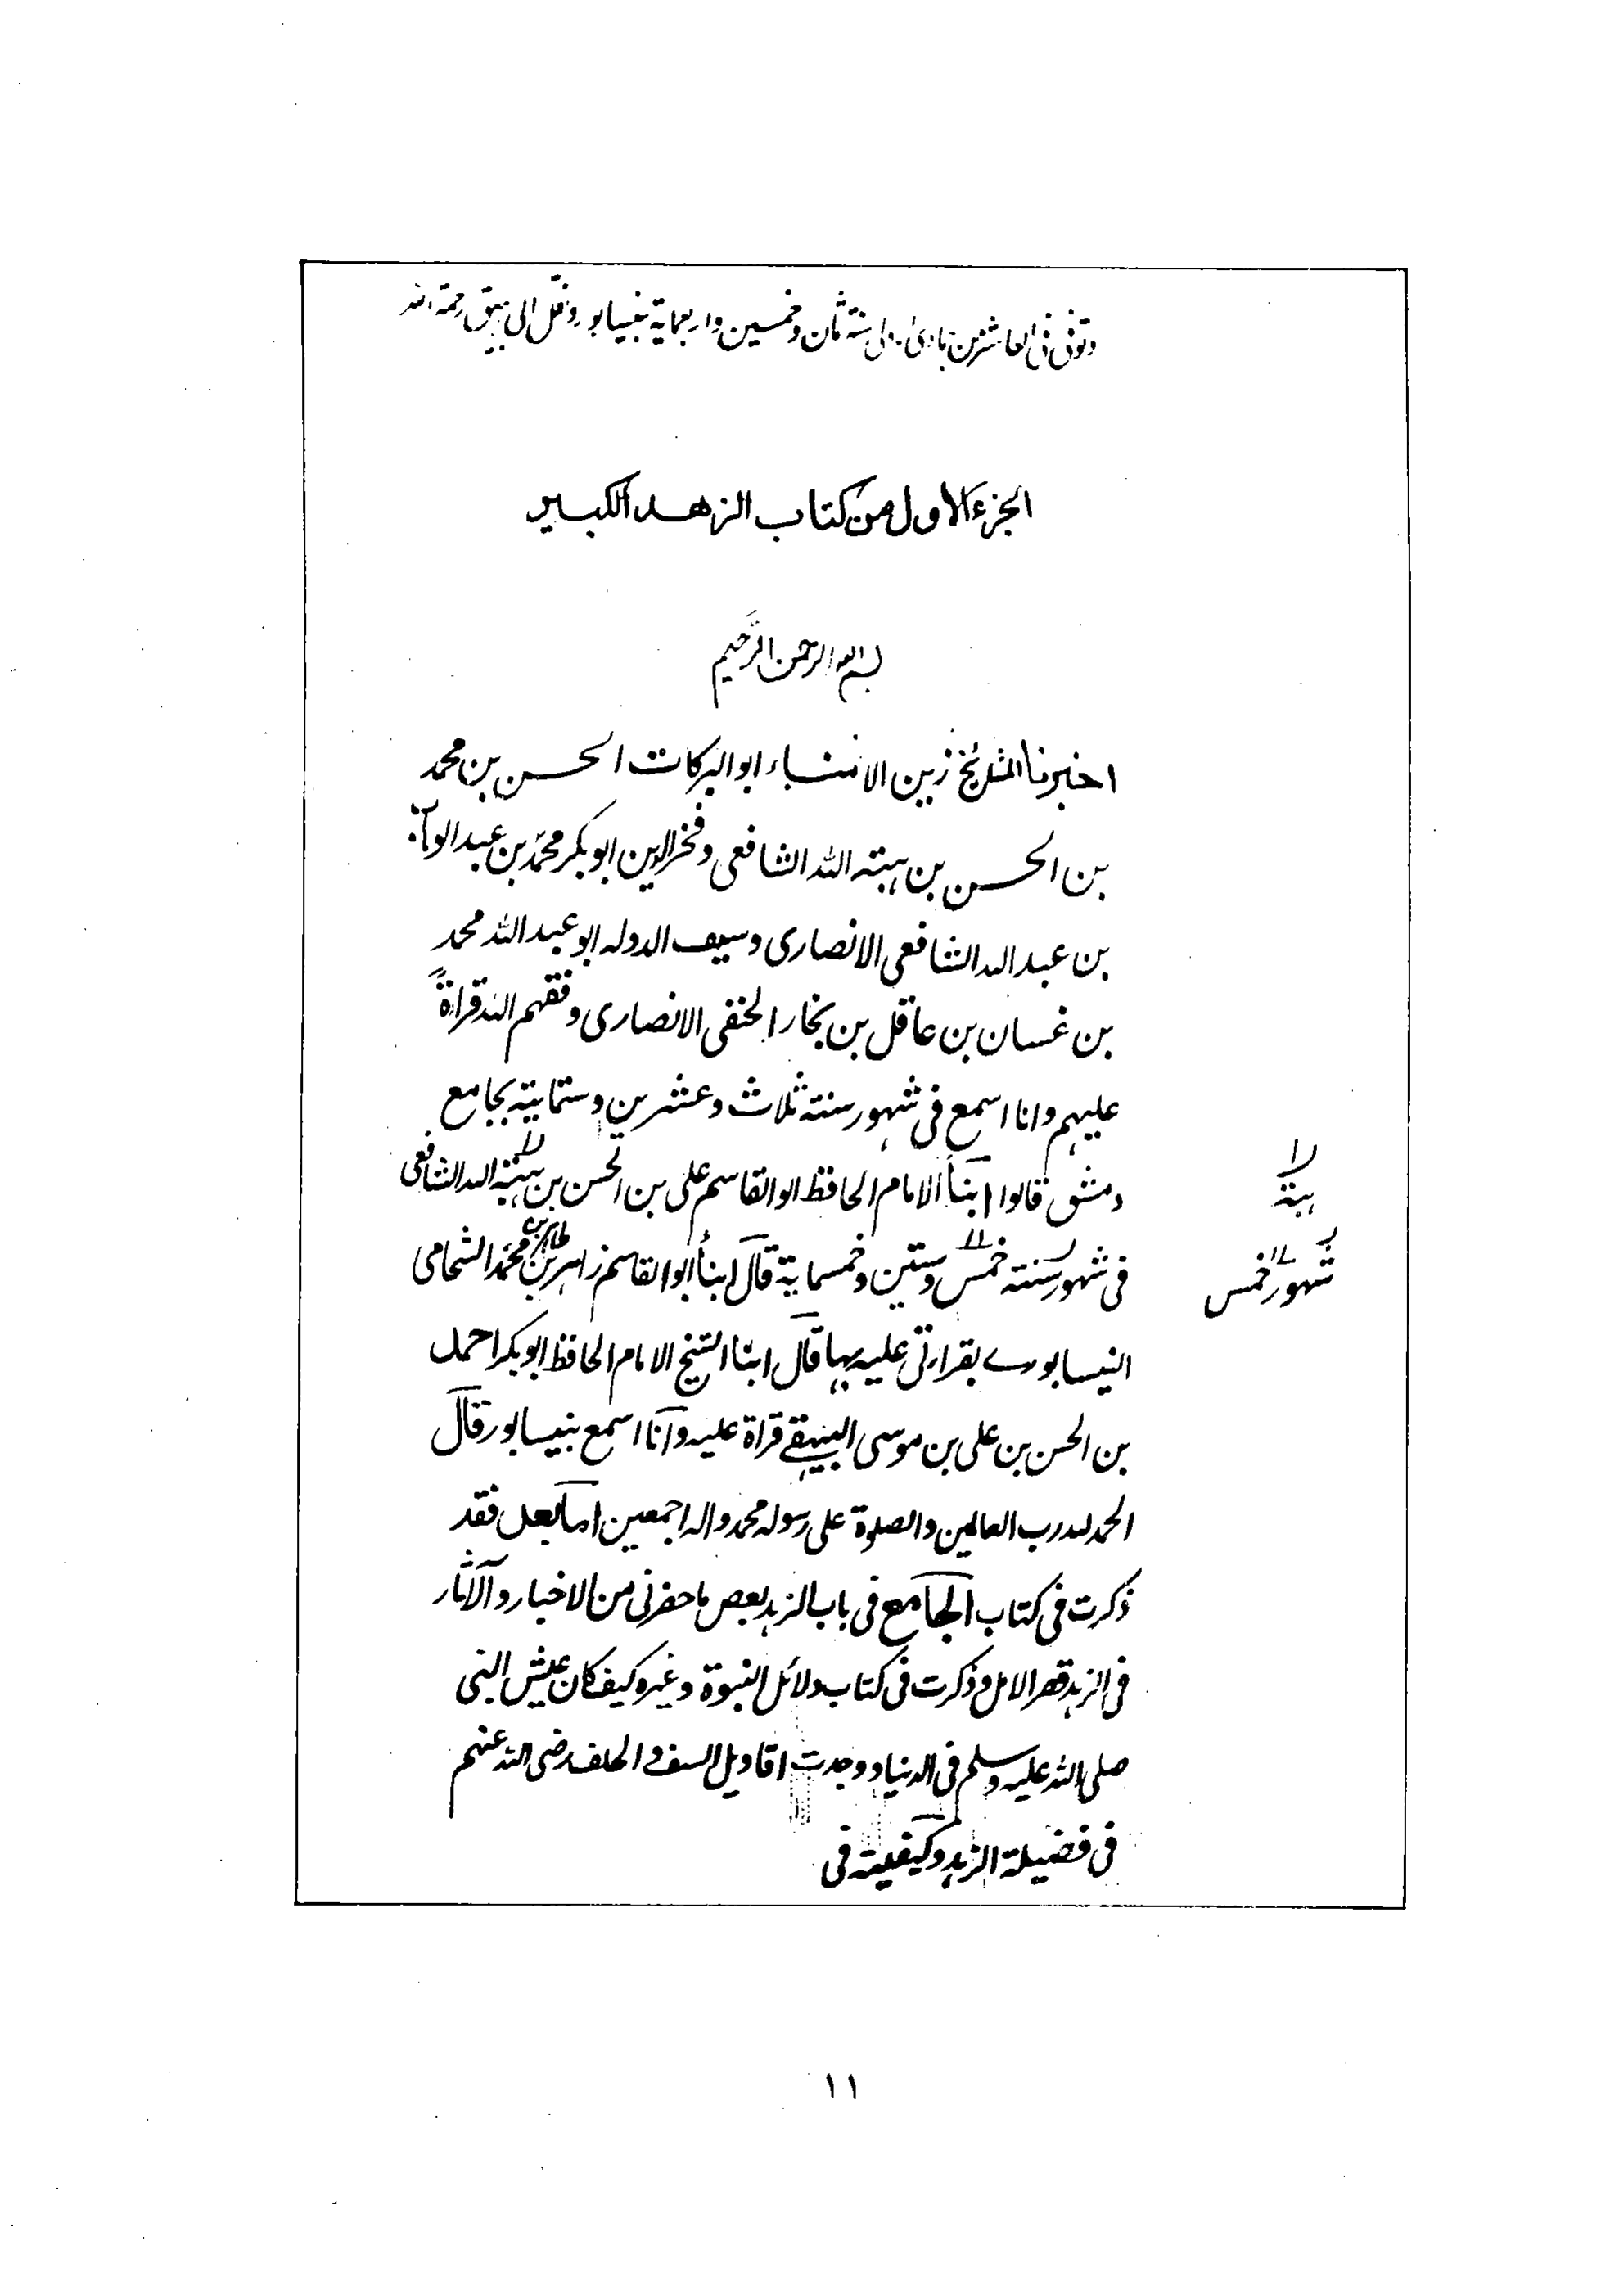 وتوفى فى العاشر من جمادى الاولى سنة ثمان وخمسين واربعماية بنيسابور ونقل الى بيهق رحمة الله
الجزء الاول من كتاب الزهد الكبير
بسم الله الرحمن الرحيم
اخبرنا المشايخ زين الامناء ابو البركات الحسن بن محمد
بن الحسن بن هبته الله الشافعى وفخر الدين ابو بكر محمد بن عبد الوهاب
بن عبد الله الشافعى الانصارى وسيف الدوله ابو عبد الله محمد
بن غسان بن عاقل بن نجار الحنفى الانصارى وفقهم الله قراةً
عليهم وانا اسمع فى شهور سنته ثلاث وعشرين وستماية بجامع
دمشق قالوا ابنأ الامام الحافظ ابو القاسم على بن الحسن بن هبته الله الشافعى
لا
هبة
فى شهور سنته خمس وستين وخمسماية قال ابنأ ابو القاسم زاهر بن طاهر بن محمد الشحامى
شهور خمس
النيسابورے بقراءتى عليه بها قال ابنا الشيخ الامام الحافظ ابو بكر احمد
بن الحسن بن على بن موسى البيهقے قراة عليه وانا اسمع بنيسابور قال
الحمد لله رب العالمين والصلوة على رسوله محمد واله اجمعين اما بعد فقد
ذكرت فى كتاب الجامع فى باب الزهد بعص ما حضرنى من الاخبار والآثار
فى الزهد قصر الامل وذكرت فى كتاب دلائل النبوة وغيره كيف كان عيش النبى
صلى الله عليه وسلم فى الدنيا ووجدت اقاويل السف والحلف رضى الله عنهم
فى فضيلة الزهد وكيفيته فى
١١